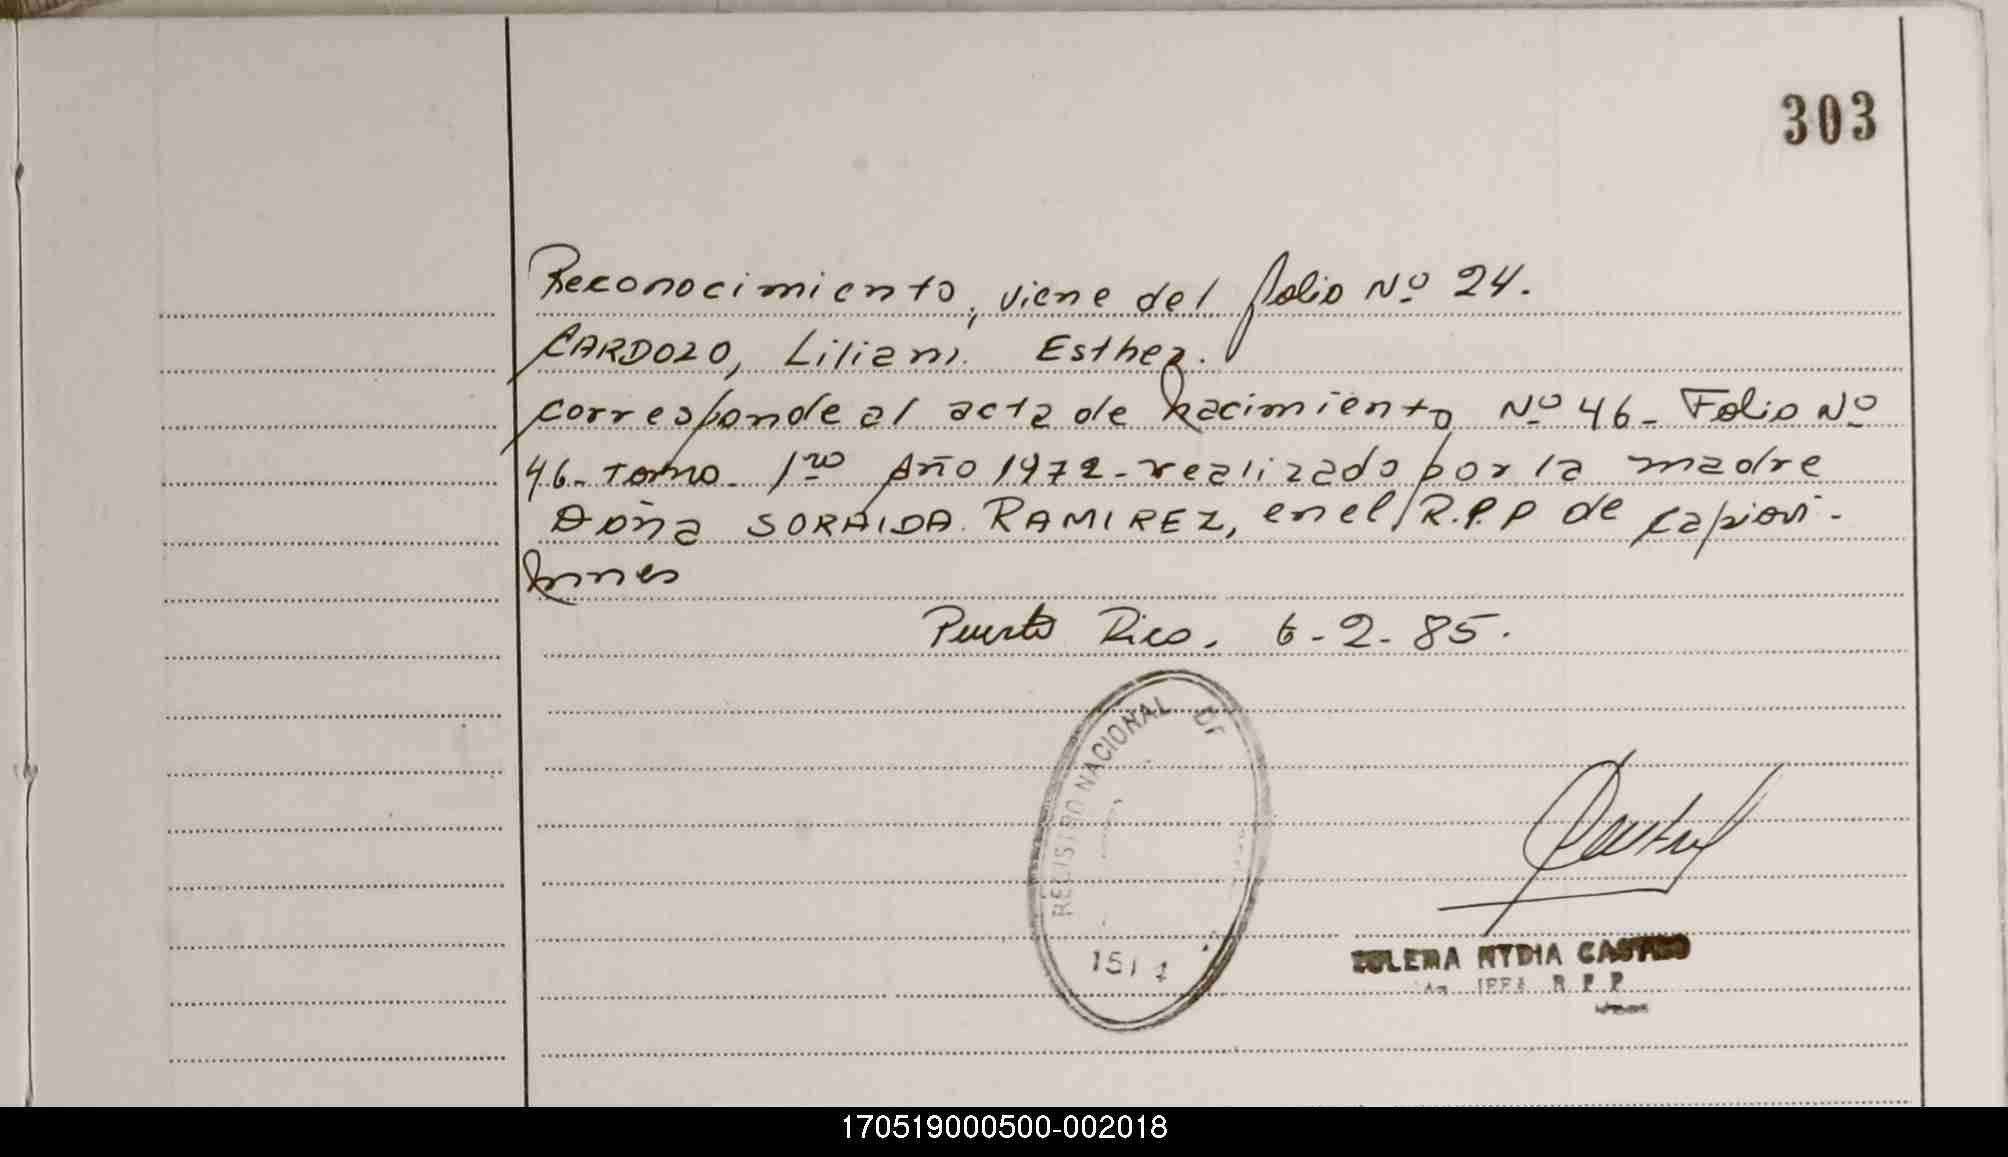 303
Reconocimiento, viene del folio Nº 24.
CARDOZO, Lilian. Esther.
corresponde al acta de nacimiento Nº 46- Folio Nº
46- Tomo- 1ro Año 1972- realizado por la madre
Doña SORAIDA RAMIREZ, en el R.P.P de Capiovi-
Puerto Rico, 6-2-85.
REGISTRO NACIONAL DE
ZULEMA NYDIA CASTRO
R P P
170519000500-002018